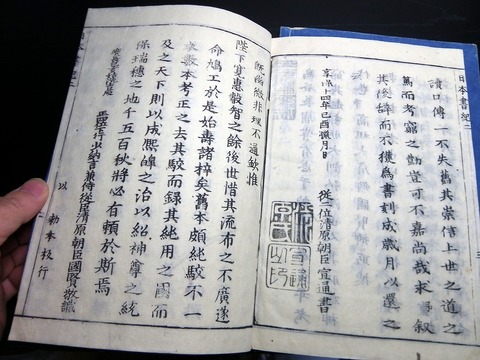 日本書紀二
讀口傳一不失舊其崇信上世之道之
篤而考竅之勤豈可不嘉尚哉求予叙
其後辞而不獲為書刻成歲月以還之
享保十四年己酉臘月日
従二位清原朝臣宣通書
非理不通欽惟
陛下寛惠叡智之餘後世惜其流布之不廣遂
命鳩工於是始壽諸梓矣舊本頗純駮不一
求數本考正之去其駮而録其純用之國而
及之天下則以成熈皥之治以紹神尊之統
保瑞穂之地千五百秋將必有頼於斯焉
正四位下行少納言兼侍従臣清原朝臣國賢敬識
以 勅本板行